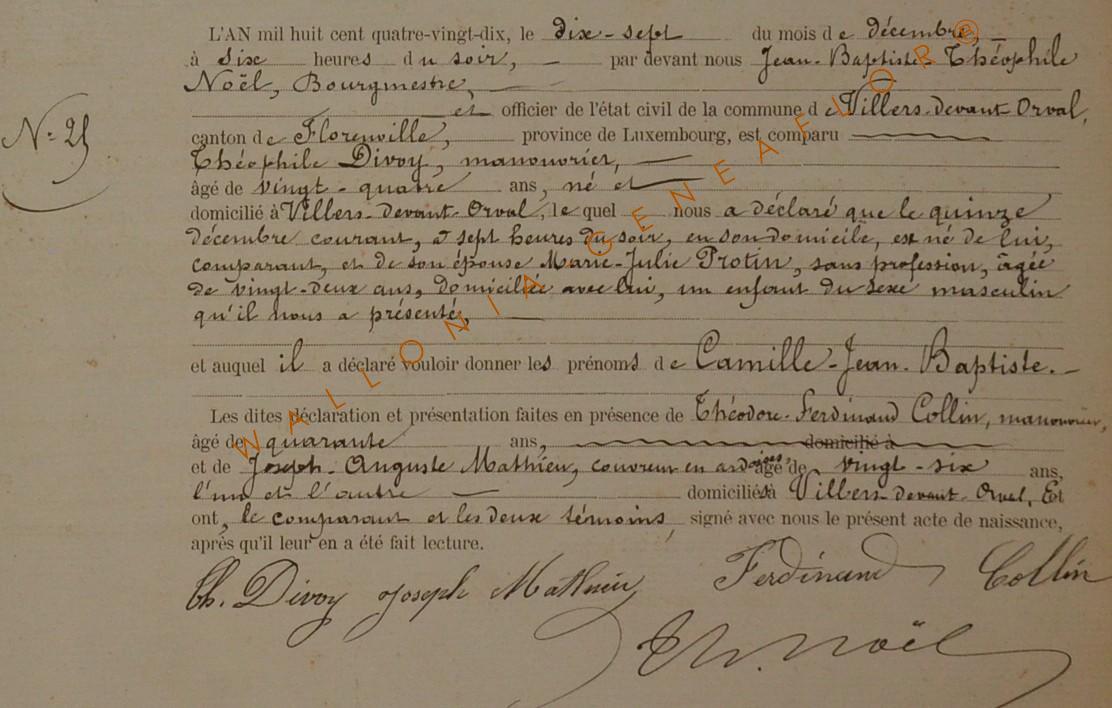 L'AN mil huit cent quatre-vingt-dix, le dix-sept du mois de décembre, —
à six heures du soir, — par devant nous Jean-Baptiste Théophile
Noël, Bourgmestre, —
et officier de l'état civil de la commune de Villers-devant-Orval,
N° 25
canton de Florenville, province de Luxembourg, est comparu
Théophile Divoy, manouvrier, —
âgé de vingt-quatre ans, né et
domicilié à Villers-devant-Orval, lequel nous a déclaré que le quinze
décembre courant, à sept heures du soir, en son domicile, est né de lui,
comparant, et de son épouse Marie-Julie Protin, sans profession, âgée
de vingt-deux ans, domiciliée avec lui, un enfant du sexe masculin
qu'il nous a présenté, —
et auquel il a déclaré vouloir donner les prénoms de Camille-Jean-Baptiste. —
Les dites déclaration et présentation faites en présence de Théodore-Ferdinand Collin, manouvrier,
âgé de quarante ans, domicilié à
et de Joseph-Auguste Mathieu, couvreur en ardoises, âgé de vingt-six ans,
l'un et l'autre — domiciliés à Villers-devant-Orval, Et
ont, le comparant et les deux témoins, signé avec nous le présent acte de naissance,
après qu'il leur en a été fait lecture.
Th. Divoy Joseph Mathieu Ferdinand Collin
Th. Noël
WALLONIA GENEAFLOR®